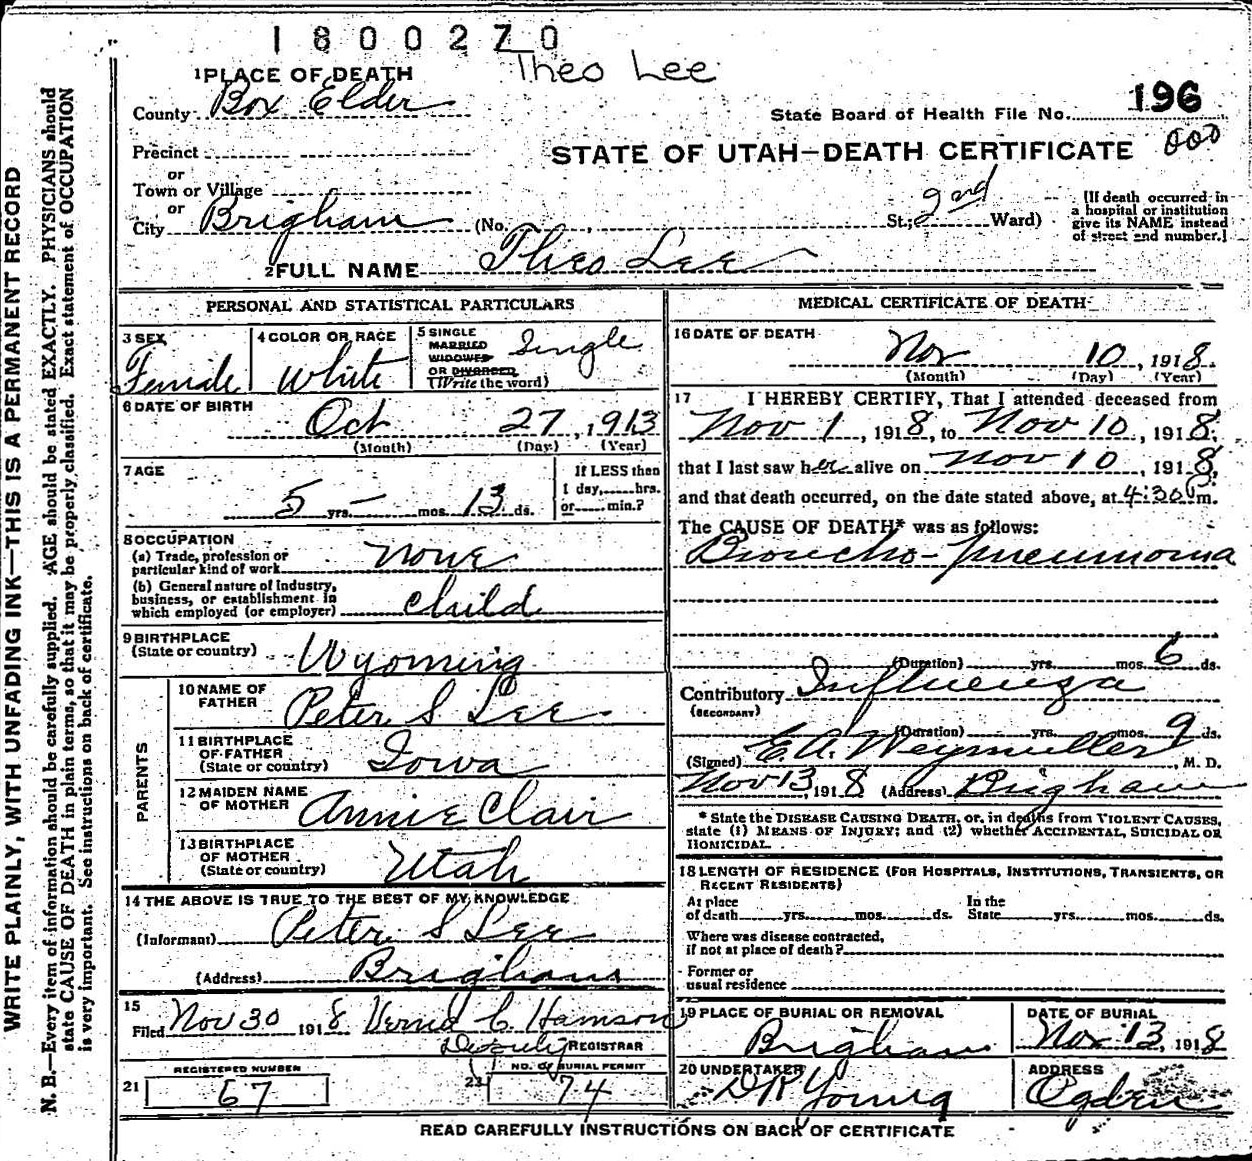 1800270
Theo Lee
1 PLACE OF DEATH
County Box Elder
State Board of Health File No. 196
000
Precinct
or
Town or Village
or
STATE OF UTAH—DEATH CERTIFICATE
City Brigham (No. , St; 2nd Ward)
[If death occurred in
a hospital or institution
give its NAME instead
of street and number.]
2 FULL NAME Theo Lee
PERSONAL AND STATISTICAL PARTICULARS
3 SEX
Female
4 COLOR OR RACE
White
5 SINGLE
MARRIED
WIDOWED
OR DIVORCED
(Write the word)
Single
6 DATE OF BIRTH
Oct 27, 1913
(Month) (Day) (Year)
7 AGE
5 yrs. — mos. 13 ds.
If LESS then
1 day, hrs.
or min.?
8 OCCUPATION
(a) Trade, profession or
particular kind of work None
(b) General nature of Industry,
business, or establishment in
which employed (or employer) Child
9 BIRTHPLACE
(State or country) Wyoming
PARENTS
10 NAME OF
FATHER Peter S Lee
11 BIRTHPLACE
OF FATHER
(State or country) Iowa
12 MAIDEN NAME
OF MOTHER Annie Clair
13 BIRTHPLACE
OF MOTHER
(State or country) Utah
14 THE ABOVE IS TRUE TO THE BEST OF MY KNOWLEDGE
(Informant) Peter S Lee
(Address) Brigham
15
Filed Nov 30 1918 C. Hamson
Deputy REGISTRAR
21 REGISTERED NUMBER
67
22 NO. OF BURIAL PERMIT
74
MEDICAL CERTIFICATE OF DEATH
16 DATE OF DEATH
Nov 10, 1918
(Month) (Day) (Year)
17 I HEREBY CERTIFY, That I attended deceased from
Nov 1, 1918, to Nov 10, 1918,
that I last saw her alive on Nov 10, 1918,
and that death occurred, on the date stated above, at 4:30 m.
The CAUSE OF DEATH* was as follows:
Broncho-pneumonia
(Duration) yrs. mos. 6 ds.
Contributory Influenza
(SECONDARY)
(Duration) yrs. mos. 9 ds.
(Signed) E. A. Weymuller, M. D.
Nov 13, 1918 (Address) Brigham
* State the DISEASE CAUSING DEATH, or, in deaths from VIOLENT CAUSES,
state (1) MEANS OF INJURY; and (2) whether ACCIDENTAL, SUICIDAL OR
HOMICIDAL.
18 LENGTH OF RESIDENCE (FOR HOSPITALS, INSTITUTIONS, TRANSIENTS, OR
RECENT RESIDENTS)
At place In the
of death yrs. mos. ds. State yrs. mos. ds.
Where was disease contracted,
if not at place of death?
Former or
usual residence
19 PLACE OF BURIAL OR REMOVAL
Brigham
DATE OF BURIAL
Nov 13, 1918
20 UNDERTAKER
Young
ADDRESS
Ogden
READ CAREFULLY INSTRUCTIONS ON BACK OF CERTIFICATE
WRITE PLAINLY, WITH UNFADING INK—THIS IS A PERMANENT RECORD
N. B.—Every item of information should be carefully supplied. AGE should be stated EXACTLY. PHYSICIANS should
state CAUSE OF DEATH in plain terms, so that it may be properly classified. Exact statement of OCCUPATION
is very important. See instructions on back of certificate.